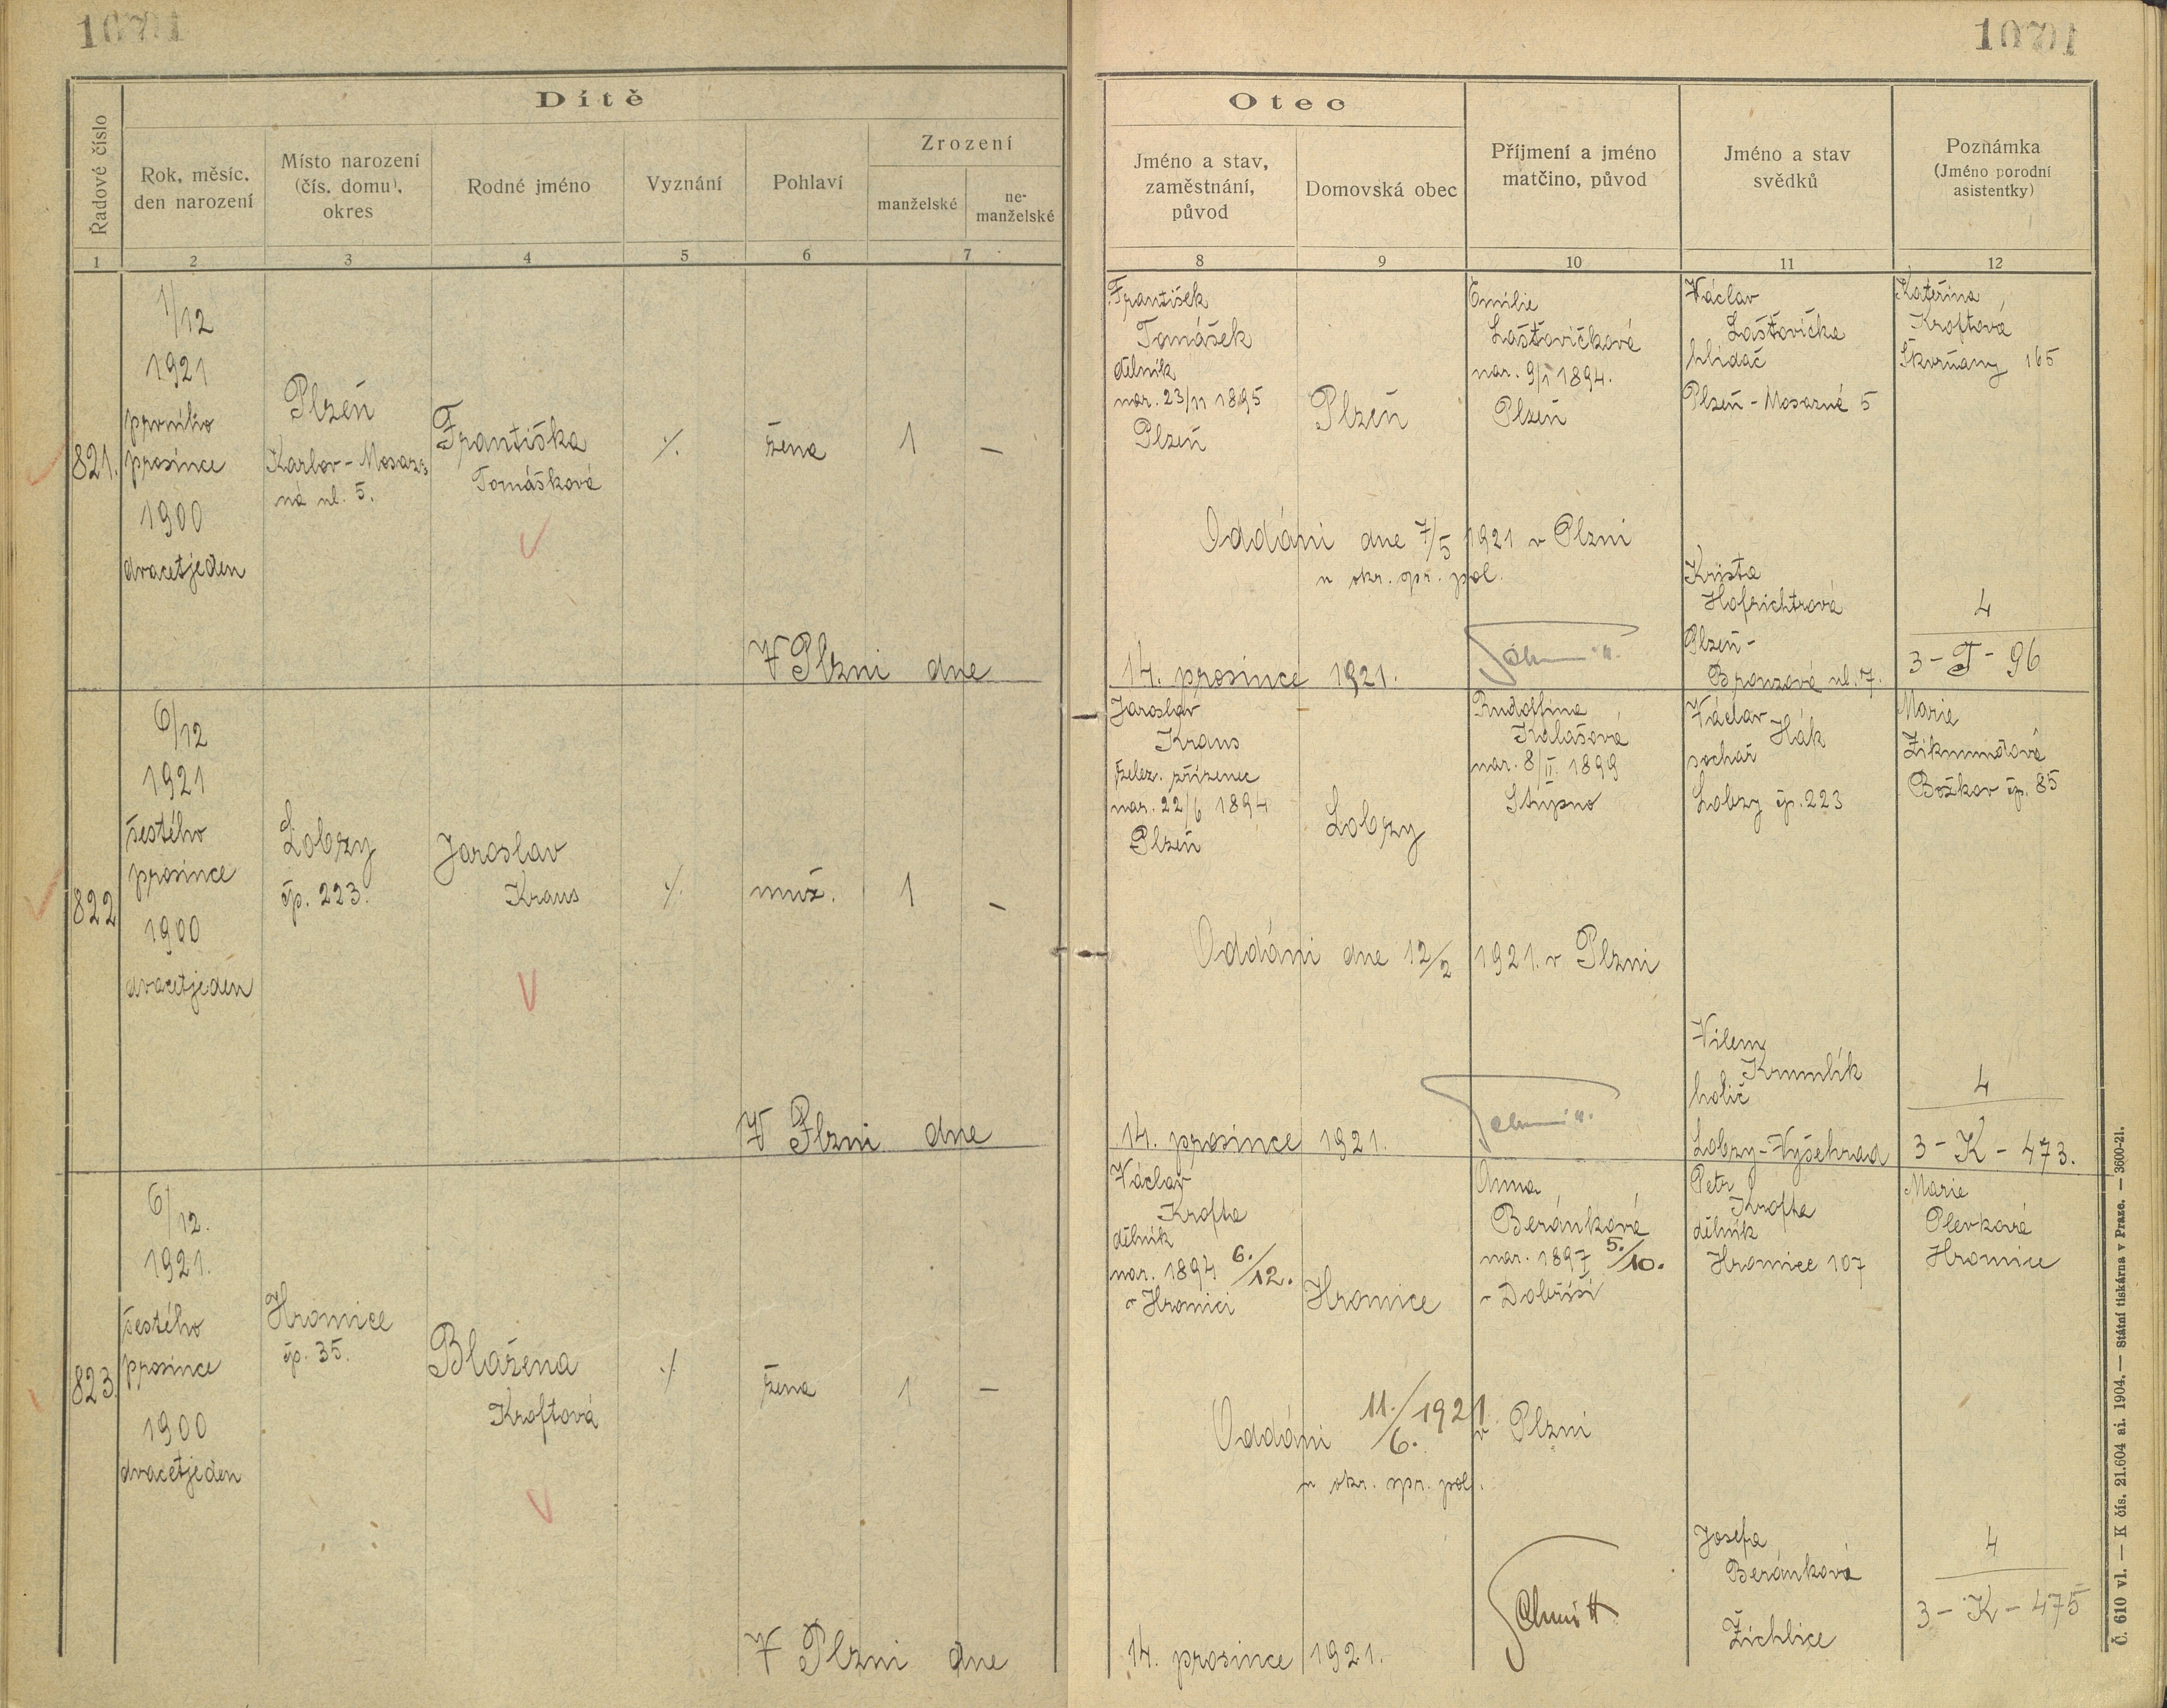 Dítě
Řadové číslo
Rok, měsíc,
den narození
Místo narození
(čís. domu),
okres
Rodné jméno
Vyznání
Pohlaví
Zrození
manželské
ne-
manželské
1 2 3 4 5 6 7
821.
1/12
1921
prvního
prosince
1900
dvacetjeden
Plzeň
Karlov-Mosaz-
ná ul. 5.
Františka
Tomášková
%
žena
1
—
V Plzni dne
822
6/12
1921
šestého
prosince
1900
dvacetjeden
Lobzy
čp. 223.
Jaroslav
Kraus
%
muž.
1
—
V Plzni dne
823.
6/12.
1921.
šestého
prosince
1900
dvacetjeden
Hromice
čp. 35.
Blažena
Kroftová
%
žena
1
—
V Plzni dne
Otec
Jméno a stav,
zaměstnání,
původ
Domovská obec
Příjmení a jméno
matčino, původ
Jméno a stav
svědků
Poznámka
(Jméno porodní
asistentky)
8 9 10 11 12
František
Tomášek
dělník
nar. 23/11 1895
Plzeň
Plzeň
Emilie
Lašťovičková
nar. 9/1 1894.
Plzeň
Václav
Lašťovička
hlídač
Plzeň-Mosazná 5
Kateřina
Kroftová
Škvrňany 165
Oddáni dne 7/5 1921 v Plzni
u okr. spr. pol.
Krista
Hofrichtrová
Plzeň-
Bronzová ul. 7.
4
3-T-96
14. prosince 1921.
Schmitt
Jaroslav
Kraus
želez. zřízenec
nar. 22/6 1894
Plzeň
Lobzy
Rudolfina
Kalašová
nar. 8/II. 1899
Stupno
Václav
Hák
sochař
Lobzy čp. 223
Marie
Zikmundová
Božkov čp. 85
Oddáni dne 12/2 1921. v Plzni
Vilem
Krumlík
holič
Lobzy-Vyšehrad
4
3-K-473.
14. prosince 1921.
Schmitt
Václav
Krofta
dělník
nar. 1894 6./12.
v Hromici
Hromice
Anna
Beránková
nar. 1897 5./10.
v Dobříši
Petr
Krofta
dělník
Hromice 107
Marie
Plevková
Hromice
Oddáni 11./6. 1921 v Plzni
u okr. spr. pol.
Josefa
Beránková
Žichlice
4
3-K-475
14. prosince 1921.
Schmitt
Č. 610 vl. — K čís. 21.604 ai. 1904. — Státní tiskárna v Praze. — 3600-21.